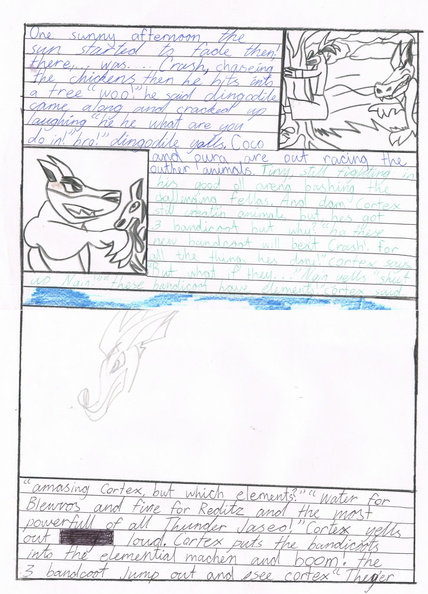 One sunny afternoon, the
sun started to fade then
there, was... Crash, chaseing
the chickens then he hits into
a tree "woo" he said dingodile
came along and cracked up
laughing "he he what are you
do in!" bro!" dingodile yalls. Coco
and pura are out racing the
outher animals. Tiny still
his good oll arena bashing the
fellas. And dam! Cortex
still creatin animals but hes got
3 bandicoot but why? "ho these
new bandacoot will beat Crash! for
all the things hes done!" cortex says
But what if they..." Nain yells "shut
up Nain!" "these bandicoot have elements" Cortex said
"amasing Cortex, but which elements?" "Water for
Blewvos and fire for Reditz and the most
powerfull of all Thunder Jaseo!" Cortex yells
out loud. Cortex puts the bandicoots
into the elemential machen and boom! the
3 bandcoot Jump out and esee cortex "They